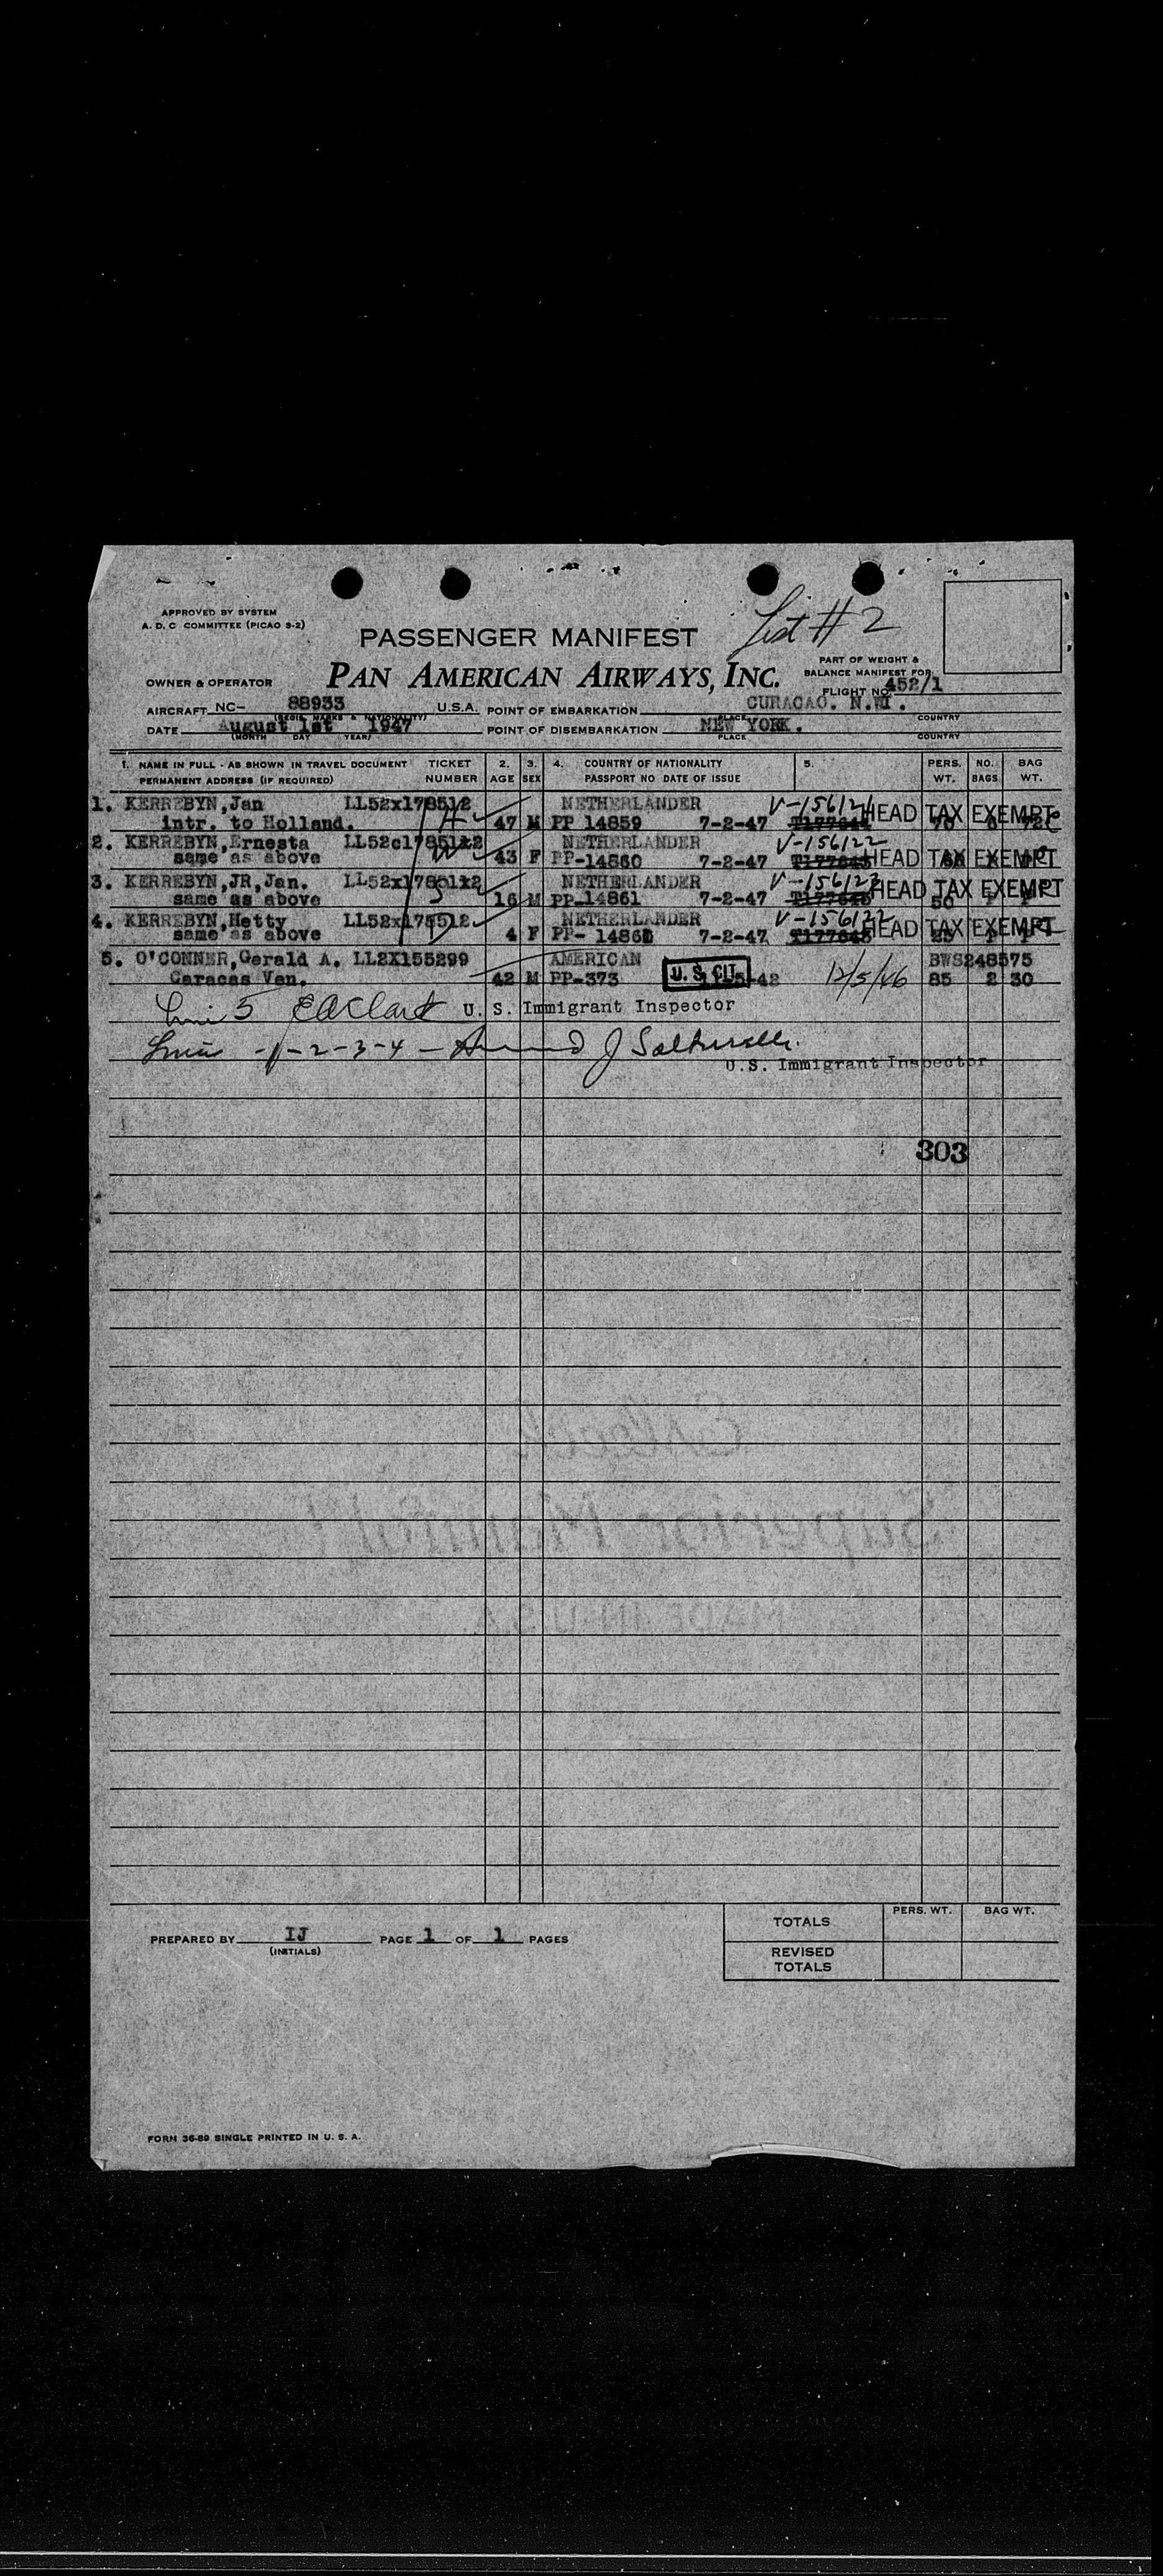 APPROVED BY SYSTEM
A. D. C COMMITTEE (PICAO 3-2)
List # 2
PASSENGER MANIFEST
PAN AMERICAN AIRWAYS, INC.
OWNER & OPERATOR
PART OF WEIGHT &
BALANCE MANIFEST FOR
FLIGHT NO. 452/1
AIRCRAFT NC- 88933 U.S.A. POINT OF EMBARKATION CURACAO. N.WI.
(REGIS. MARKS & NATIONALITY) PLACE COUNTRY
DATE August 1st 1947 POINT OF DISEMBARKATION NEW YORK.
(MONTH DAY YEAR) PLACE COUNTRY
1. NAME IN FULL - AS SHOWN IN TRAVEL DOCUMENT TICKET 2. 3. 4. COUNTRY OF NATIONALITY 5. PERS. NO. BAG
PERMANENT ADDRESS (IF REQUIRED) NUMBER AGE SEX PASSPORT NO DATE OF ISSUE WT. BAGS WT.
1. KERREBYN, Jan NETHERLANDER
intr. to Holland. 47 M PP 14859 7-2-47 HEAD TAX EXEMPT
2. KERREBYN, Ernesta NETHERLANDER V-156122
same as above 43 F PP-14860 7-2-47 HEAD TAX EXEMPT
3. KERREBYN, JR, Jan. NETHERLANDER V-156123
same as above 16 M PP-14861 7-2-47 HEAD TAX EXEMPT
4. KERREBYN, Hetty NETHERLANDER V-156122
same as above 4 F PP- 7-2-47 HEAD TAX EXEMPT
5. O'CONNER, Gerald A. LL2X155299 AMERICAN BWS248575
Caracas Ven. 42 M PP-373 U. S. CIT. 12/5/46 85 2 30
5 U. S. Immigrant Inspector
-1-2-3-4-
U.S. Immigrant Inspector
303
PREPARED BY IJ PAGE 1 OF 1 PAGES
(INITIALS)
PERS. WT. BAG WT.
TOTALS
REVISED
TOTALS
FORM 36-89 SINGLE PRINTED IN U. S. A.